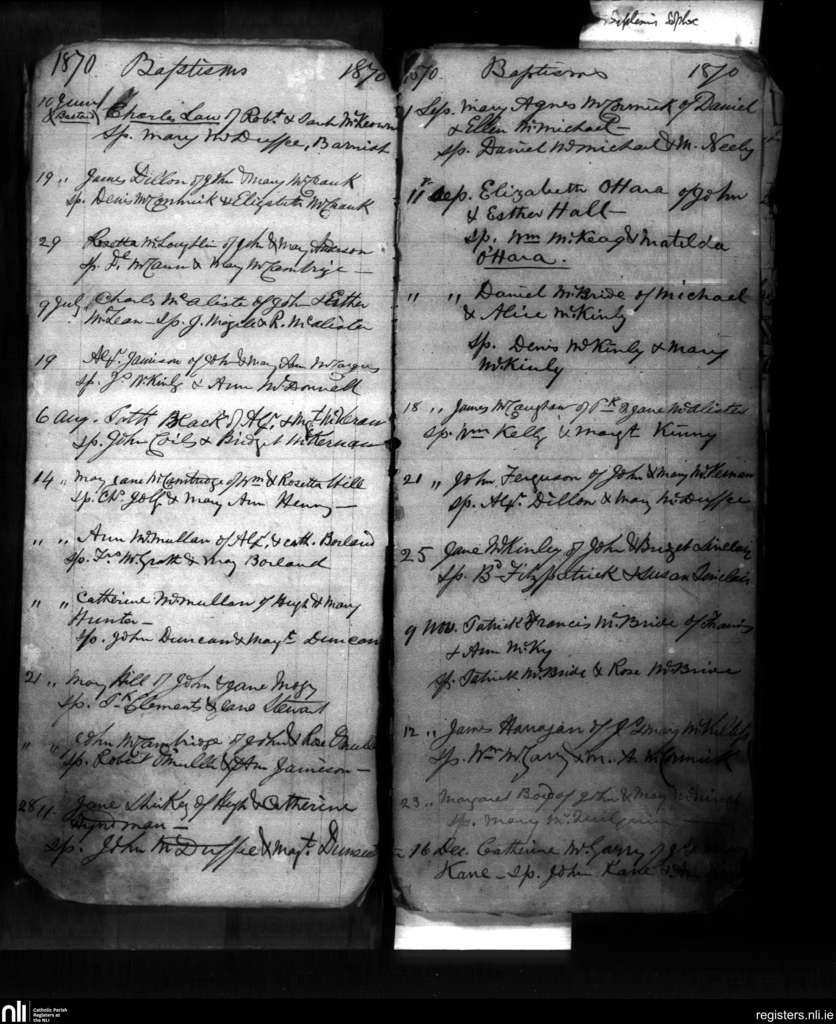 Baptisms
1870 Baptisms 1870
10 June Charles Law of Robt & Sarah McKeown
(Bastard)
Sp. Mary McDuffee, Barnish
19 " James Dillon of John & Mary
Sp. Denis McCormick & Elizabeth
29 Rosetta McLoughlin of John & Mary Anderson
Sp. McCann & Mary McCambrige —
9 July Charles McAlister of John & Esther
McLean — Sp. J. & R. McAlister
19 Alexr. Jamison of John & Mary Ann
Sp. Js. McKinly & Ann McDonnell
6 Aug. Black of Alexr. &
Sp. John & Bridget McKernan
14 " Mary Jane McCambridge of Wm & Rosetta Hill
Sp. Chs. & Mary Ann Henry —
" " Ann McMullan of Alexr. & Cath. Borland
Sp. & May Borland
" " Catherine McMullan of Hugh & Mary
Hunter —
Sp. John Duncan & Mayt. Duncan
21 " Mary Hill of John & Jane
Sp. Pk Clements & Jane Stewart
" " John McCambridge of John & Rose
Sp. Robert & Ann Jamieson —
28 " Jane of Hugh & Catherine
Hyndman —
Sp. John McDuffee & Mayt. Duncan
1870. Baptisms 1870
1 Sep. Mary Agnes McCormick of Daniel
& Ellen McMichael —
Sp. Daniel McMichael & M. Neely
11 Sep. Elizabeth OHara of John
& Esther Hall —
Sp. Wm McKeag & Matilda
OHara.
" " Daniel McBride of Michael
& Alice McKinly
Sp. Denis McKinly & Mary
McKinly
18 " James McCaughan of Pk & Jane McAlister
Sp. Wm Kelly & Mayt Kinny
21 " John Ferguson of John & Mary McKernan
Sp. Alexr. Dillon & Mary McDuffee
25 Jane McKinley of John & Bridget Sinclair
Sp. Bd. Fitzpatrick & Susan Sinclair
9 Nov. Patrick Francis McBride of Francis
& Ann McKy
Sp. Patrick McBride & Rose McBride
12 " James Hanagan of Js & Mary
Sp. Wm & M. A. McCormick
23 " Margaret Boyd of John & Mary
Sp. Mary
16 Dec. Catherine McGarry of
Kane — Sp. John Kane &
nli Catholic Parish
Registers at
the NLI
registers.nli.ie